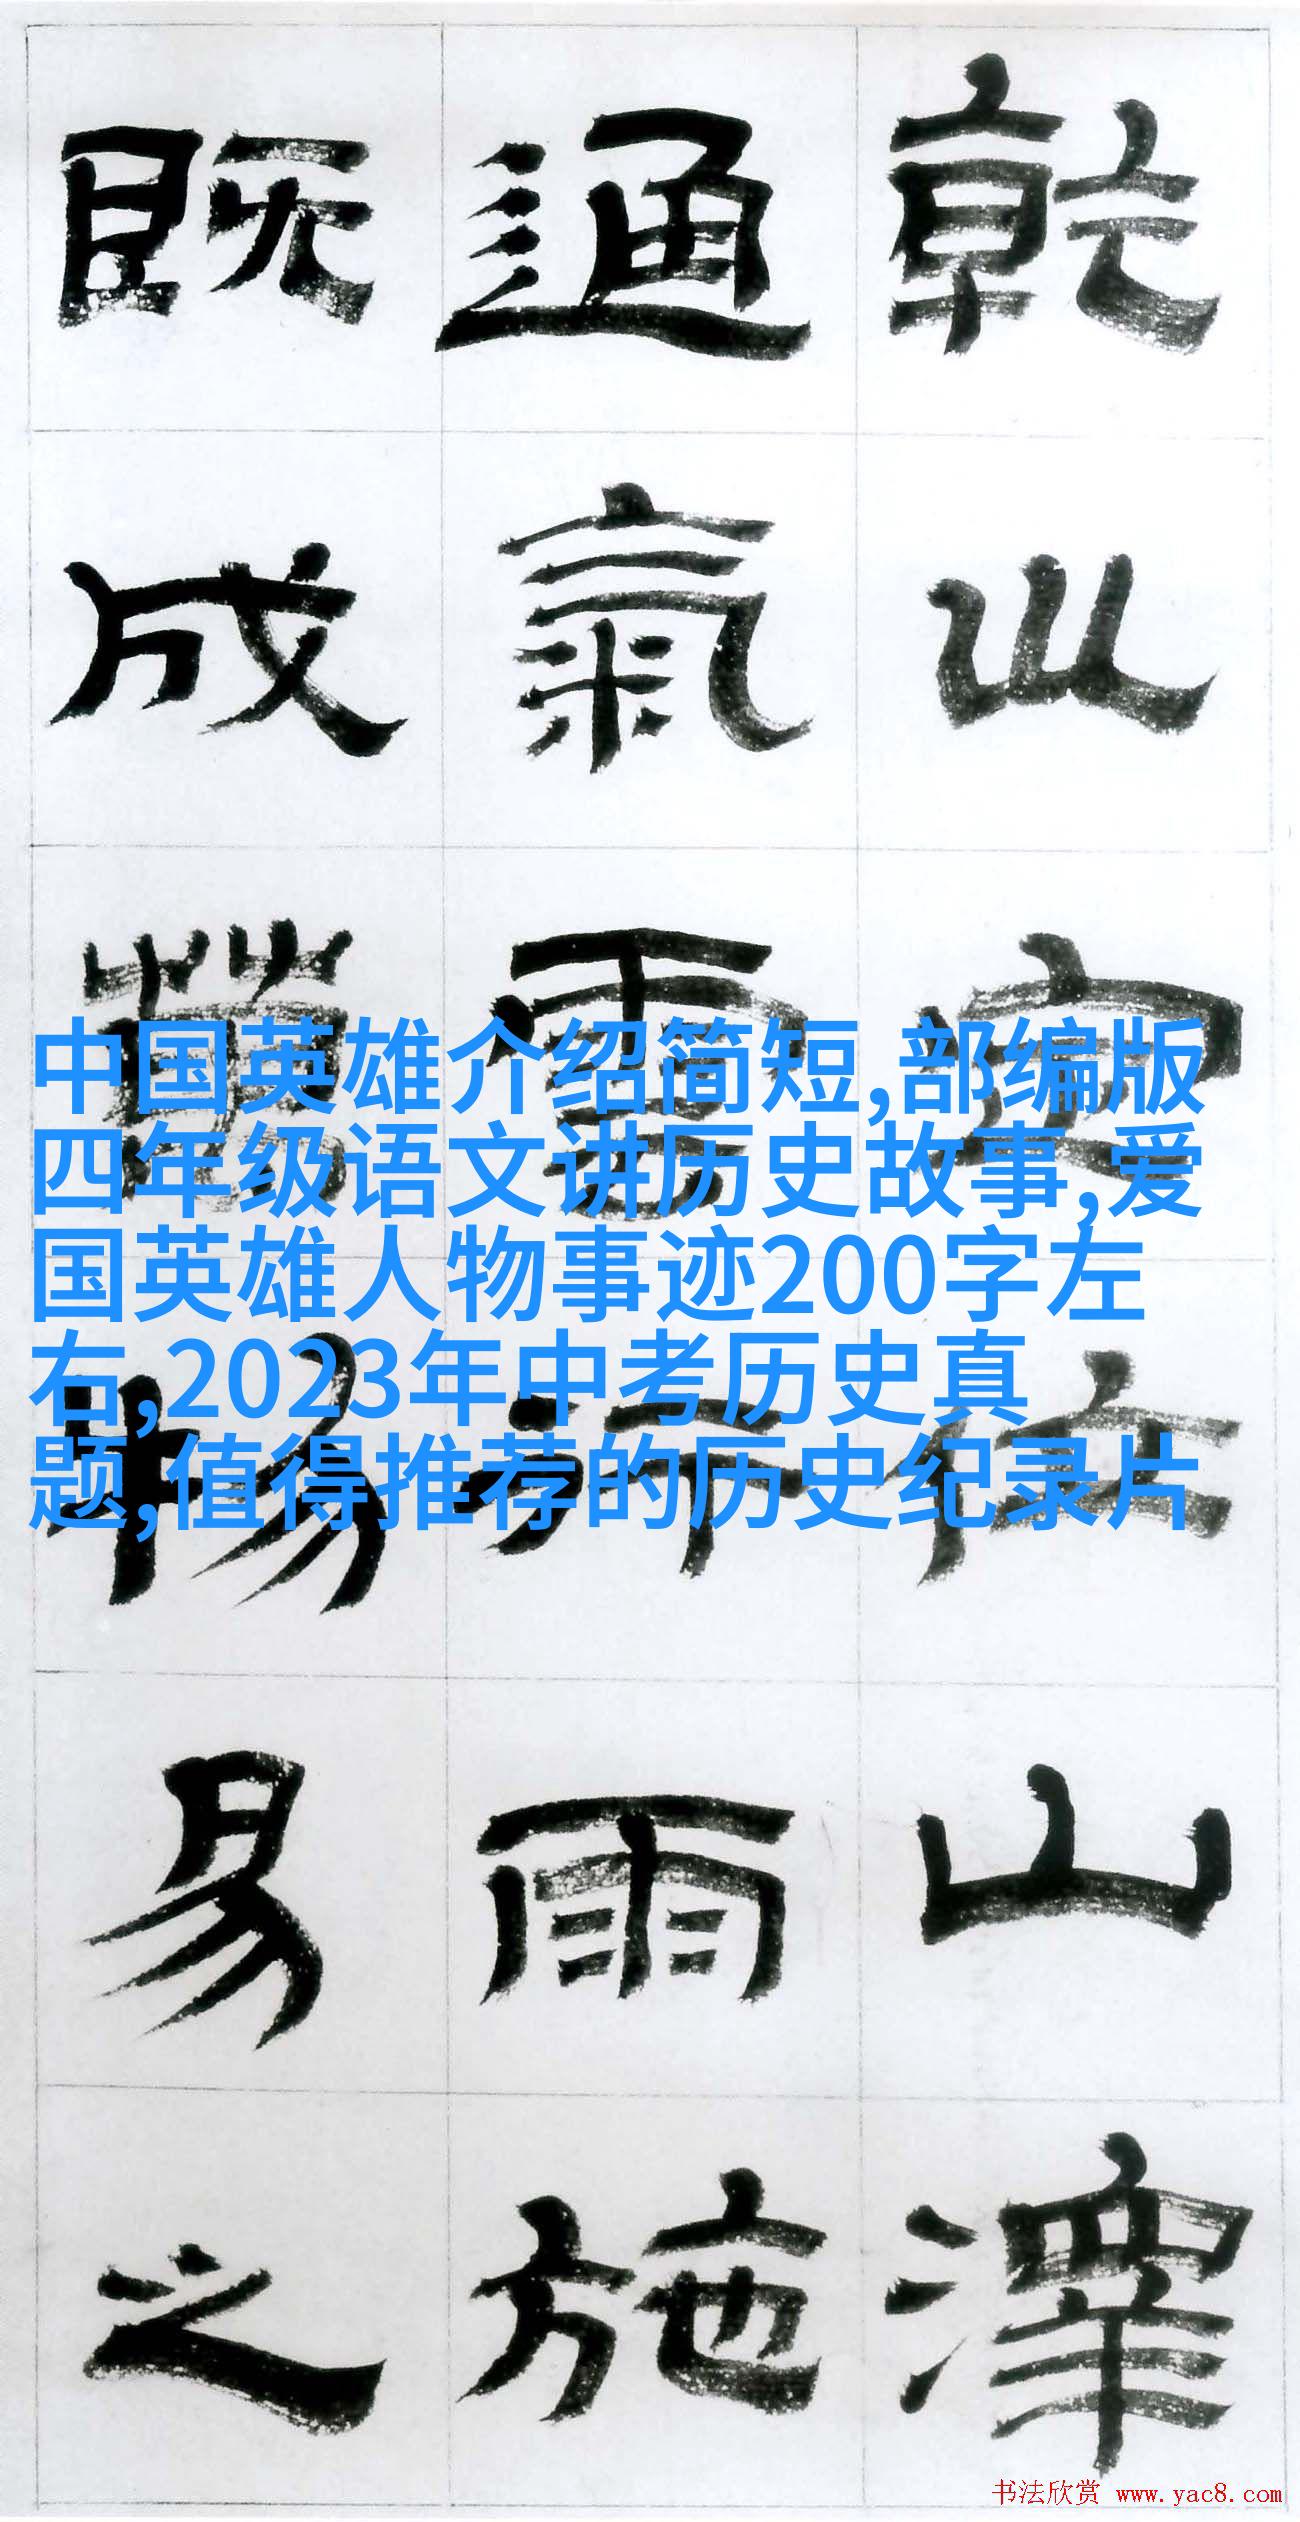 乾巛定位山澤
通氣雲行雨施
既成易之
中国英雄介绍简短,部编版
四年级语文讲历史故事,爱
国英雄人物事迹200字左
右,2023年中考历史真
题,值得推荐的历史纪录片
书法欣赏 www.yac8.com